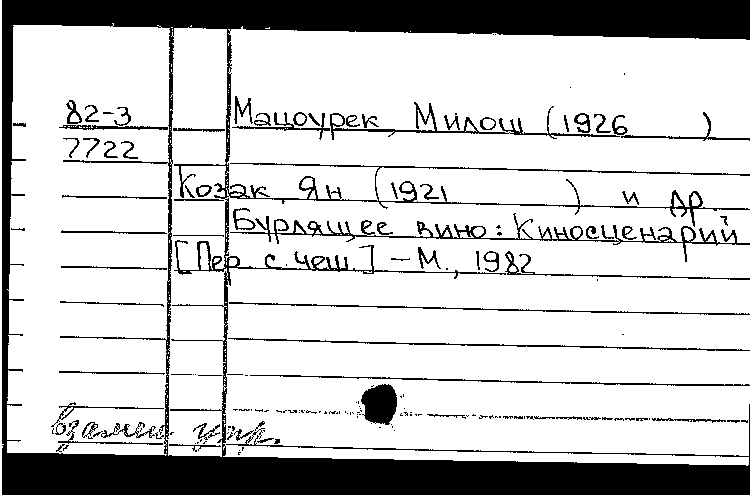 82-3 Мацоурек, Милош (1926 )
7722
Козак, Ян (1921 ) и др.
Бурлящее вино: Киносценарий
[Пер. с чеш.] – М., 1982
взамен утр.